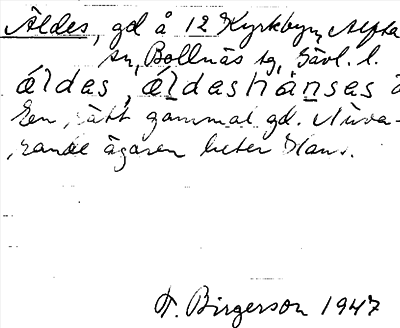 Äldes, gd å 12 Kyrkbyn, Alfta
sn, Bollnäs tg, Gävl. l.
áldas, áldashánsas
En rätt gammal gd. Nuva-
rande ägaren heter Hans.
T. Birgerson 1947